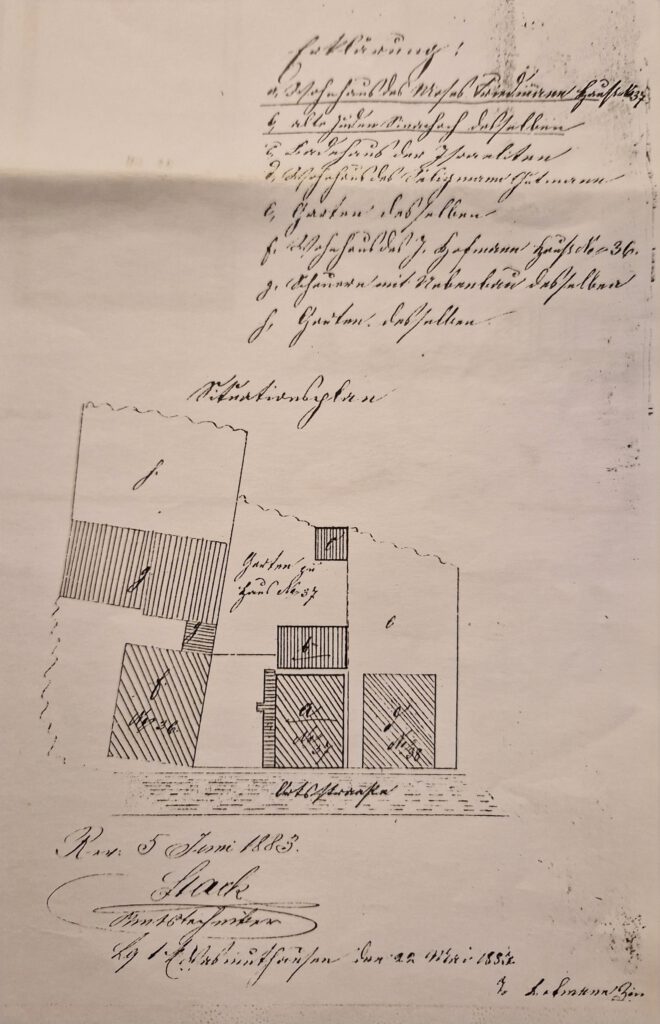 Erklärung!
a, Wohnhaus des Moses Friedmann Hauß No 37
b, alte Juden desselben
c, Badehaus der Israeliten
d, Wohnhaus des Seligmann Gutmann
e, Garten desselben
f. Wohnhaus des J. Hofmann Hauß No 36.
g. Scheuern mit Nebenbau desselben
h, Garten desselben
Situationsplan
h.
c
g
Garten zu
Haus No 37
e
g
b.
f
No 36
a.
No 37
No 38
Ortsstraaße
Rev. 5 Juni 1883.
Stack
Amtstechniker
Wasmuthausen den 22 Mai 1883.
Hofmann